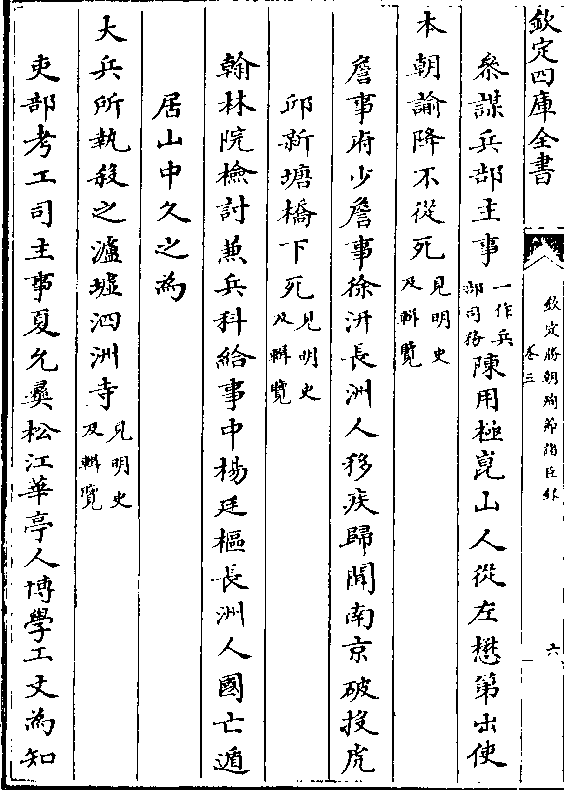 欽定四庫全書
欽定勝朝殉節諸臣錄
卷三
六
叅謀兵部主事一作兵部司務陳用極崑山人從左懋第出使
本朝諭降不從死見明史及輯覽
詹事府少詹事徐汧長洲人移疾歸聞南京破投虎
邱新塘橋下死見明史及輯覽
翰林院檢討兼兵科給事中楊廷樞長洲人國亡遁
居山中久之為
大兵所執殺之瀘墟泗洲寺見明史及輯覽
吏部考工司主事夏允彞松江華亭人博學工文為知